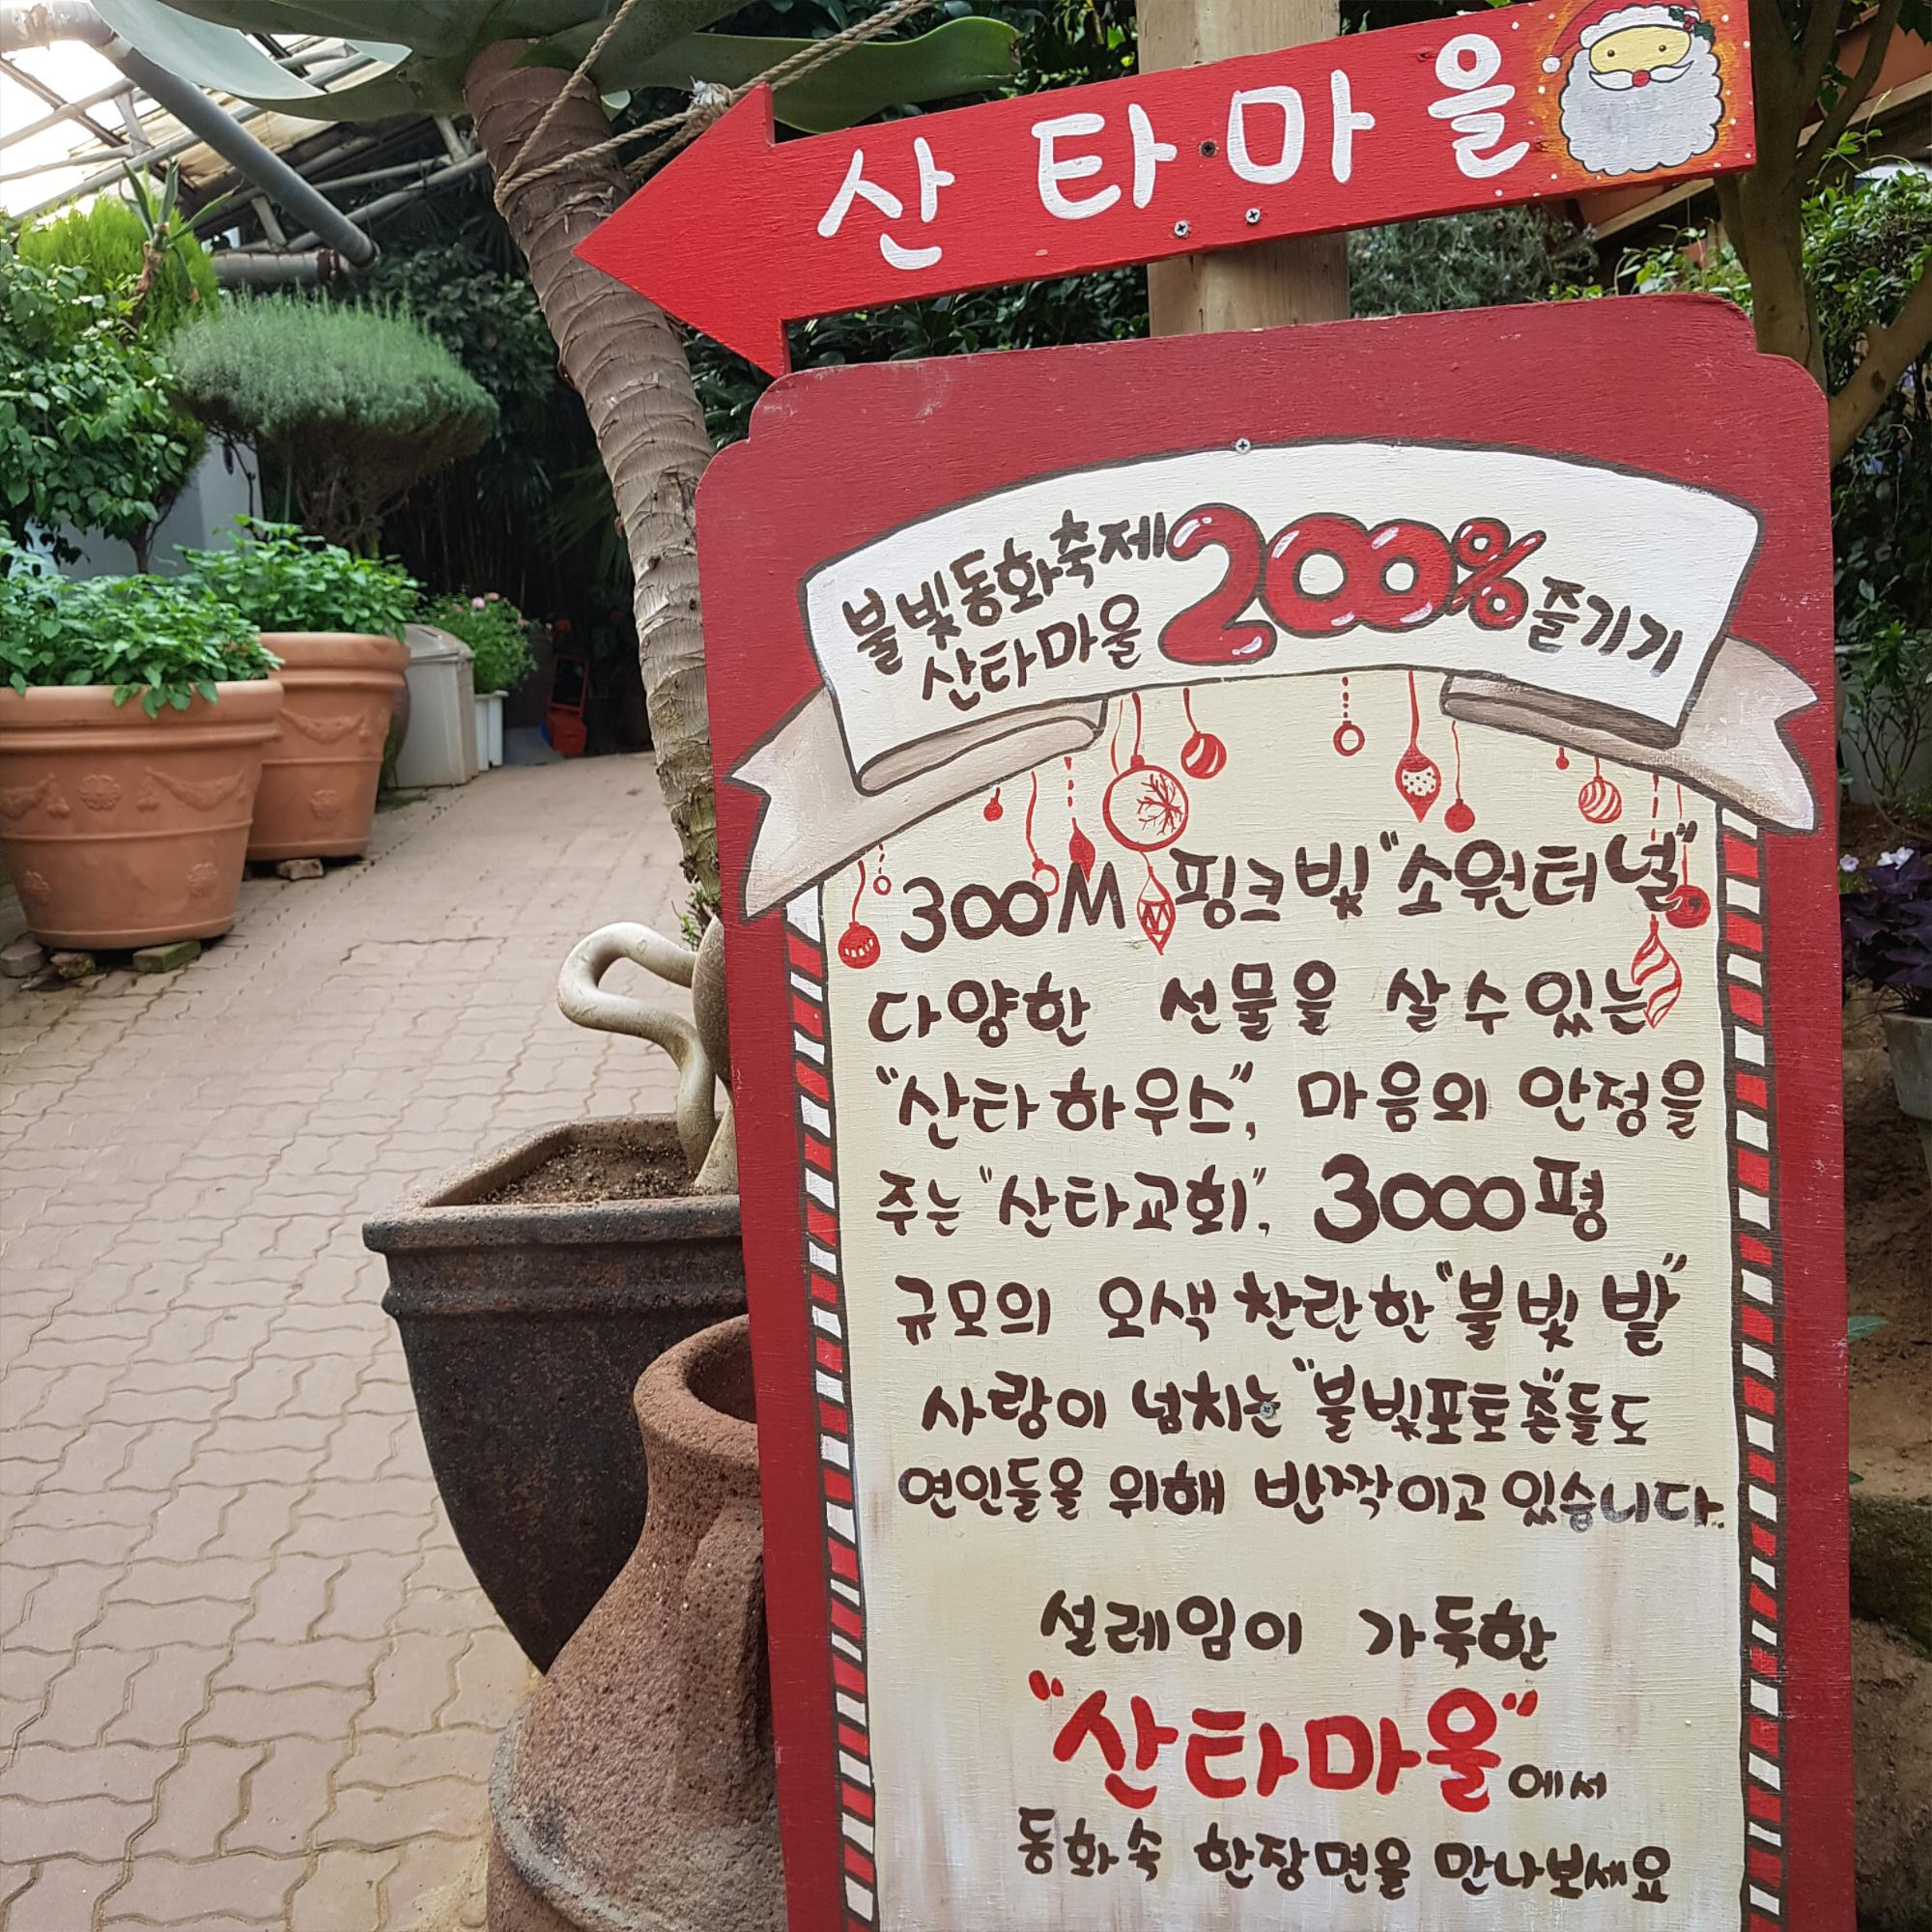 산타마을
불빛동화축제 200% 즐기기
산타마을
300M 핑크빛 "소원터널"
다양한 선물을 살수있는
"산타하우스", 마음의 안정을
주는 "산타교회", 3000평
규모의 오색찬란한 "불빛밭"
사랑이 넘치는 "불빛포토존"들도
연인들을 위해 반짝이고 있습니다.
설레임이 가득한
"산타마을"에서
동화속 한장면을 만나보세요